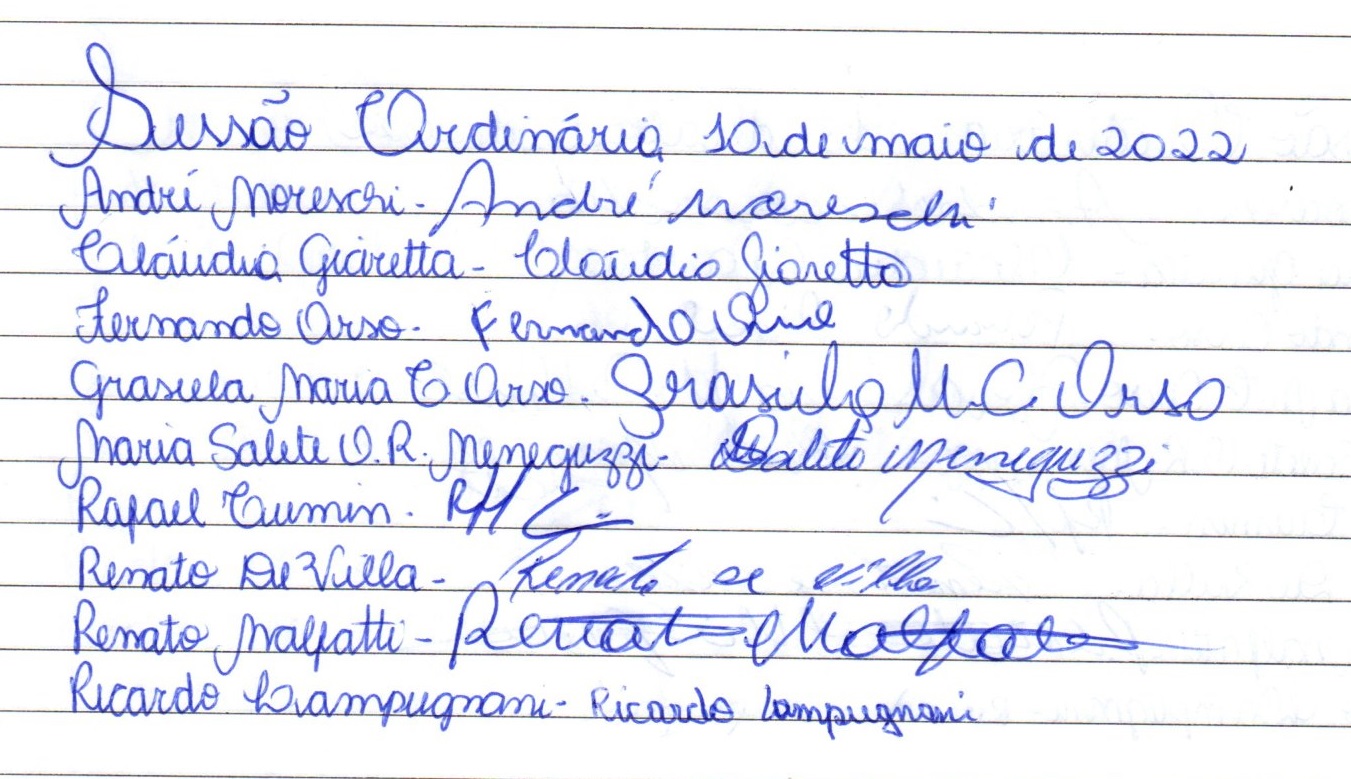 Sessão Ordinária, 10 de maio de 2022
André Moreschi - André Moreschi
Cláudia Giaretta - Claúdia Giaretta
Fernando Orso - Fernando Orso
Grasiela Maria C Orso - Grasiela M.C Orso
Maria Salete O.R. Meneguzzi - Salete Meneguzzi
Rafael Tumin -
Renato De Villa - Renato de Villa
Renato Malfatti - Renato Malfatti
Ricardo Lampugnani - Ricardo Lampugnani